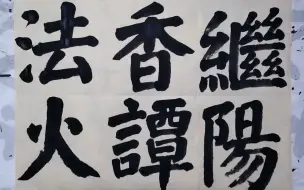 繼陽
香譚
法火